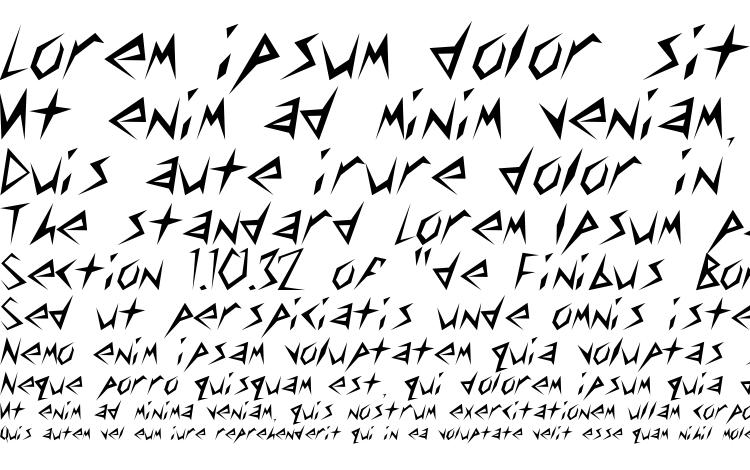 Lorem ipsum dolor sit
Ut enim ad minim veniam,
Duis aute irure dolor in
The standard Lorem Ipsum pa
Section 1.10.32 of "de Finibus Bon
Sed ut perspiciatis unde omnis iste
Nemo enim ipsam voluptatem quia voluptas
Neque porro quisquam est, qui dolorem ipsum quia d
Ut enim ad minima veniam, quis nostrum exercitationem ullam corpo
Quis autem vel eum iure reprehenderit qui in ea voluptate velit esse quam nihil mole